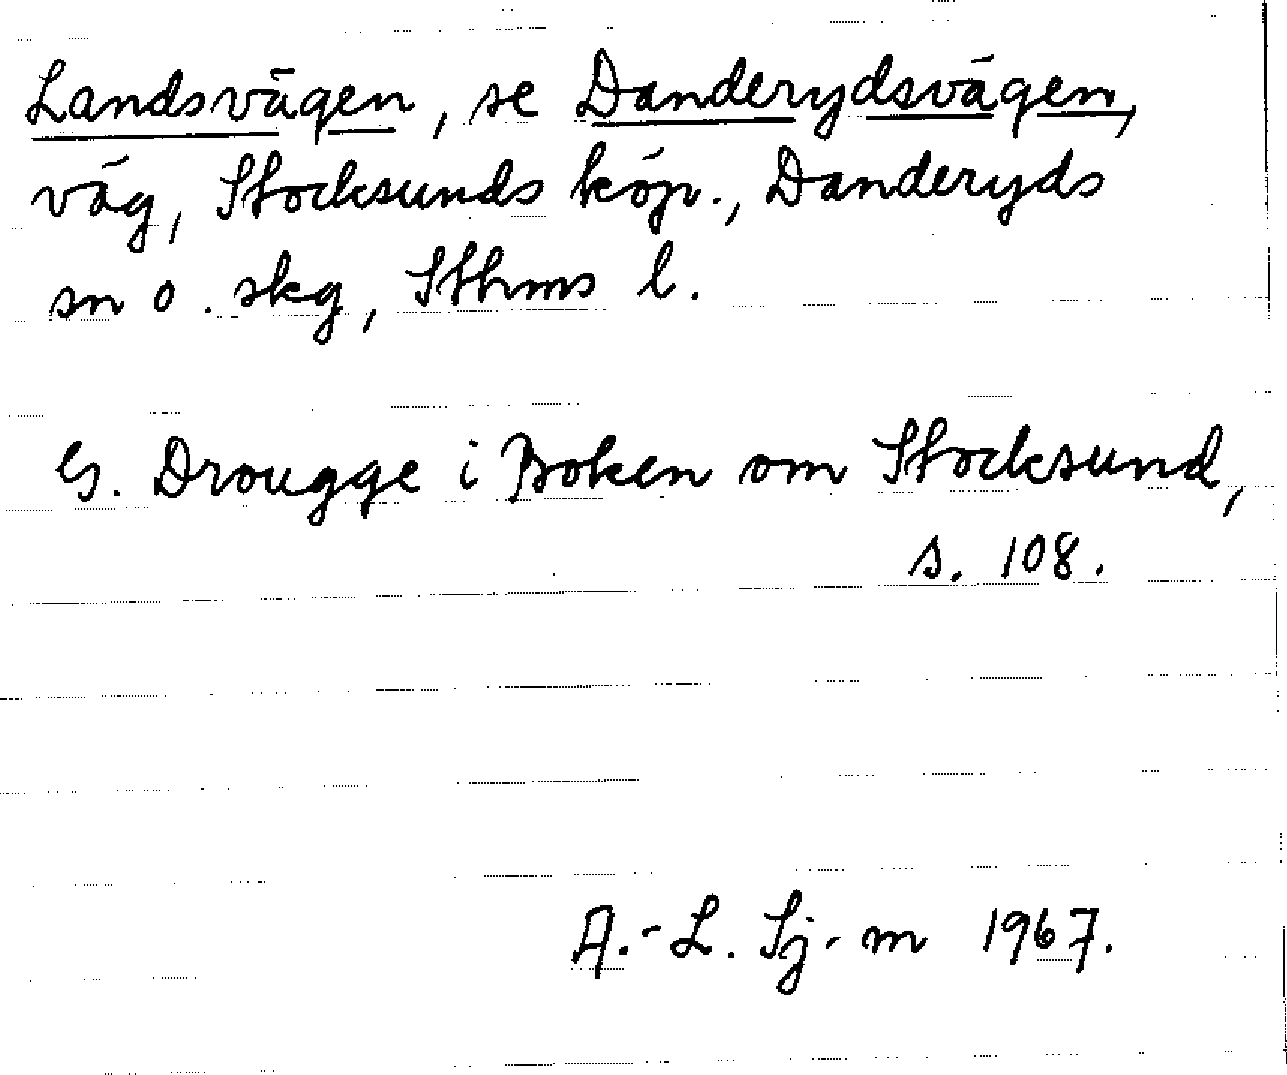 Landsvägen, se Danderydsvägen,
väg, Stocksunds köp., Danderyds
sn o. skg, Sthms l.
G. Drougge i Boken om Stocksund,
s. 108.
A.-L. Sj-m 1967.